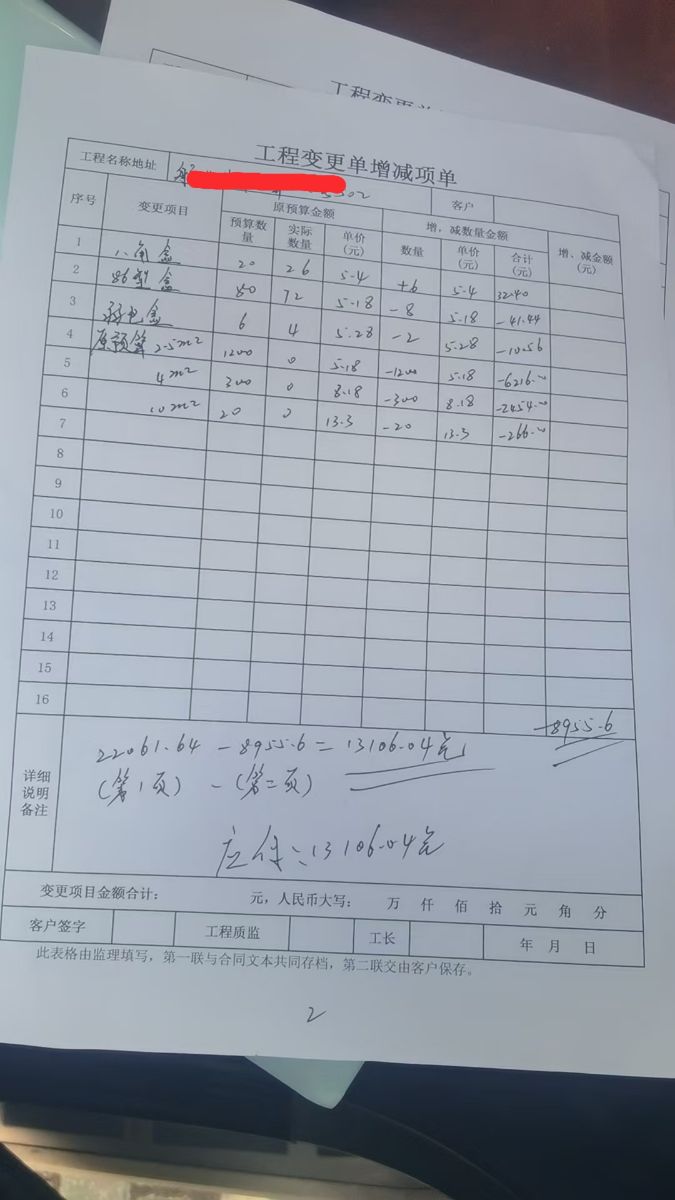 工程变更单
工程变更单增减项单
工程名称地址 5302 客户
序号 变更项目 原预算金额 增,减数量金额 增、减金额(元)
预算数量 实际数量 单价(元) 数量 单价(元) 合计(元)
1 八角盒 20 26 5.4 +6 5.4 32.40
2 86型盒 80 72 5.18 -8 5.18 -41.44
3 弱电盒 6 4 5.28 -2 5.28 -10.56
4 原预算 2.5m² 1200 0 5.18 -1200 5.18 -6216.00
5 4m² 300 0 8.18 -300 8.18 -2454.00
6 10m² 20 0 13.3 -20 13.3 -266.00
7
8
9
10
11
12
13
14
15
16 -8955.6
详细说明备注
22061.64 - 8955.6 = 13106.04元
(第1页) - (第二页)
应付:13106.04元
变更项目金额合计: 元,人民币大写: 万 仟 佰 拾 元 角 分
客户签字 工程质监 工长 年 月 日
此表格由监理填写,第一联与合同文本共同存档,第二联交由客户保存。
2